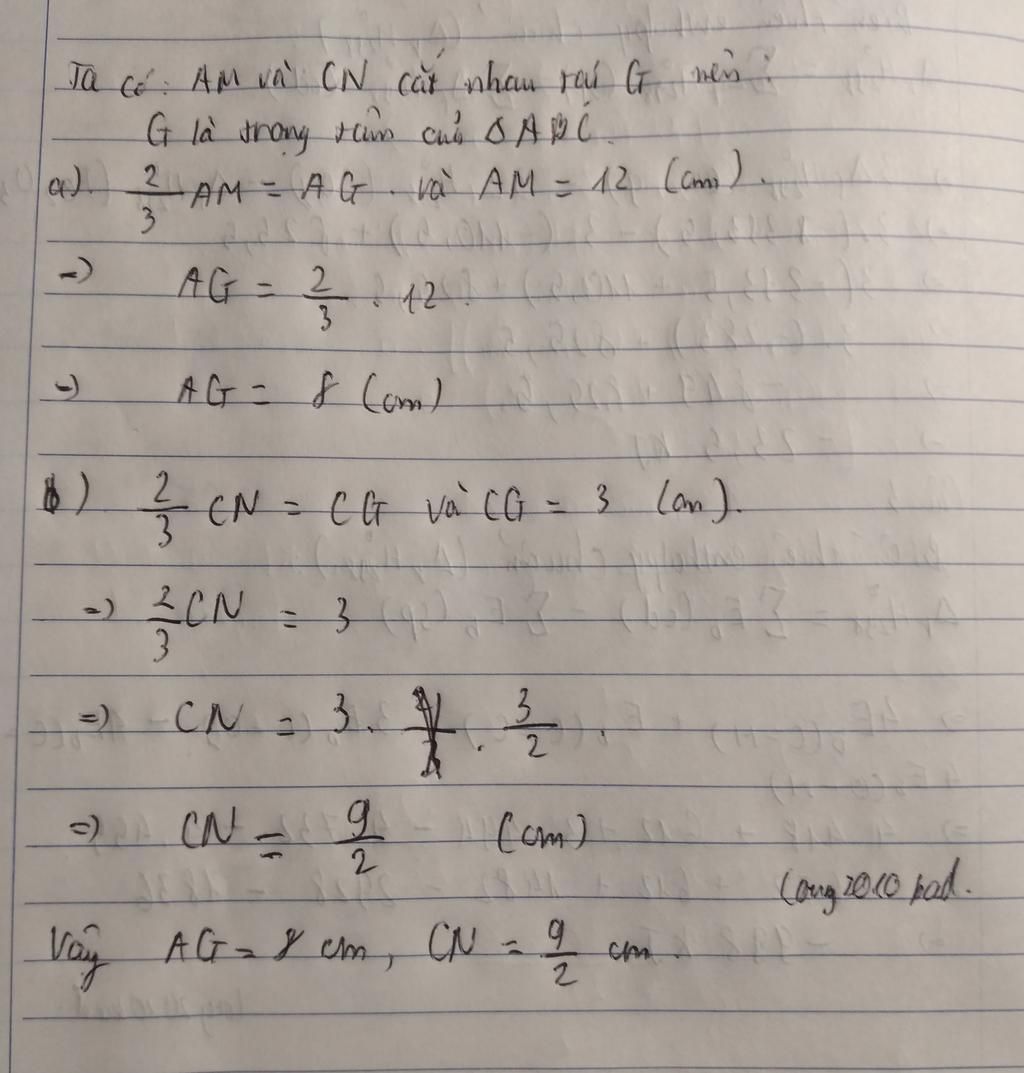 Ta có: AM và CN cắt nhau tại G nên:
G là trọng tâm của ΔABC.
a). 2/3 AM = AG. và AM = 12 (cm).
=) AG = 2/3 . 12.
=) AG = 8 (cm)
b) 2/3 CN = CG và CG = 3 (cm).
=) 2/3 CN = 3
=) CN = 3. . 3/2 .
=) CN = 9/2 (cm)
long2010 bad.
Vậy AG = 8 cm, CN = 9/2 cm.